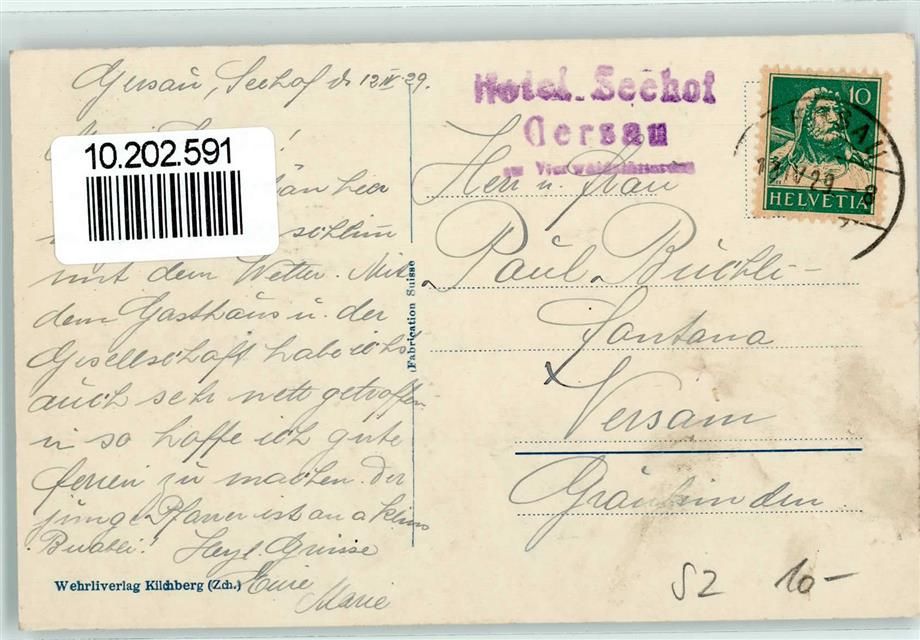 Gersau, Seehof d. 12.IV.29.
10.202.591
hier
schlimm
mit dem Wetter. Mit
dem Gasthaus u. der
Gesellschaft habe ichs
auch sehr nett getroffen
u so hoffe ich gute
ferien zu machen. Der
junge Pfarrer ist an a kleins
Buabli! Herzl. Grüsse
Eure
Marie
Wehrliverlag Kilchberg (Zch.)
(Fabrication Suisse
Hotel Seehof
Gersau
am Vierwaldstättersee
10
HELVETIA
GERSAU
12.IV.29.-8
Herr u. Frau
Paul Büchli-
Fontana
Versam
Graubünden
S2 10-